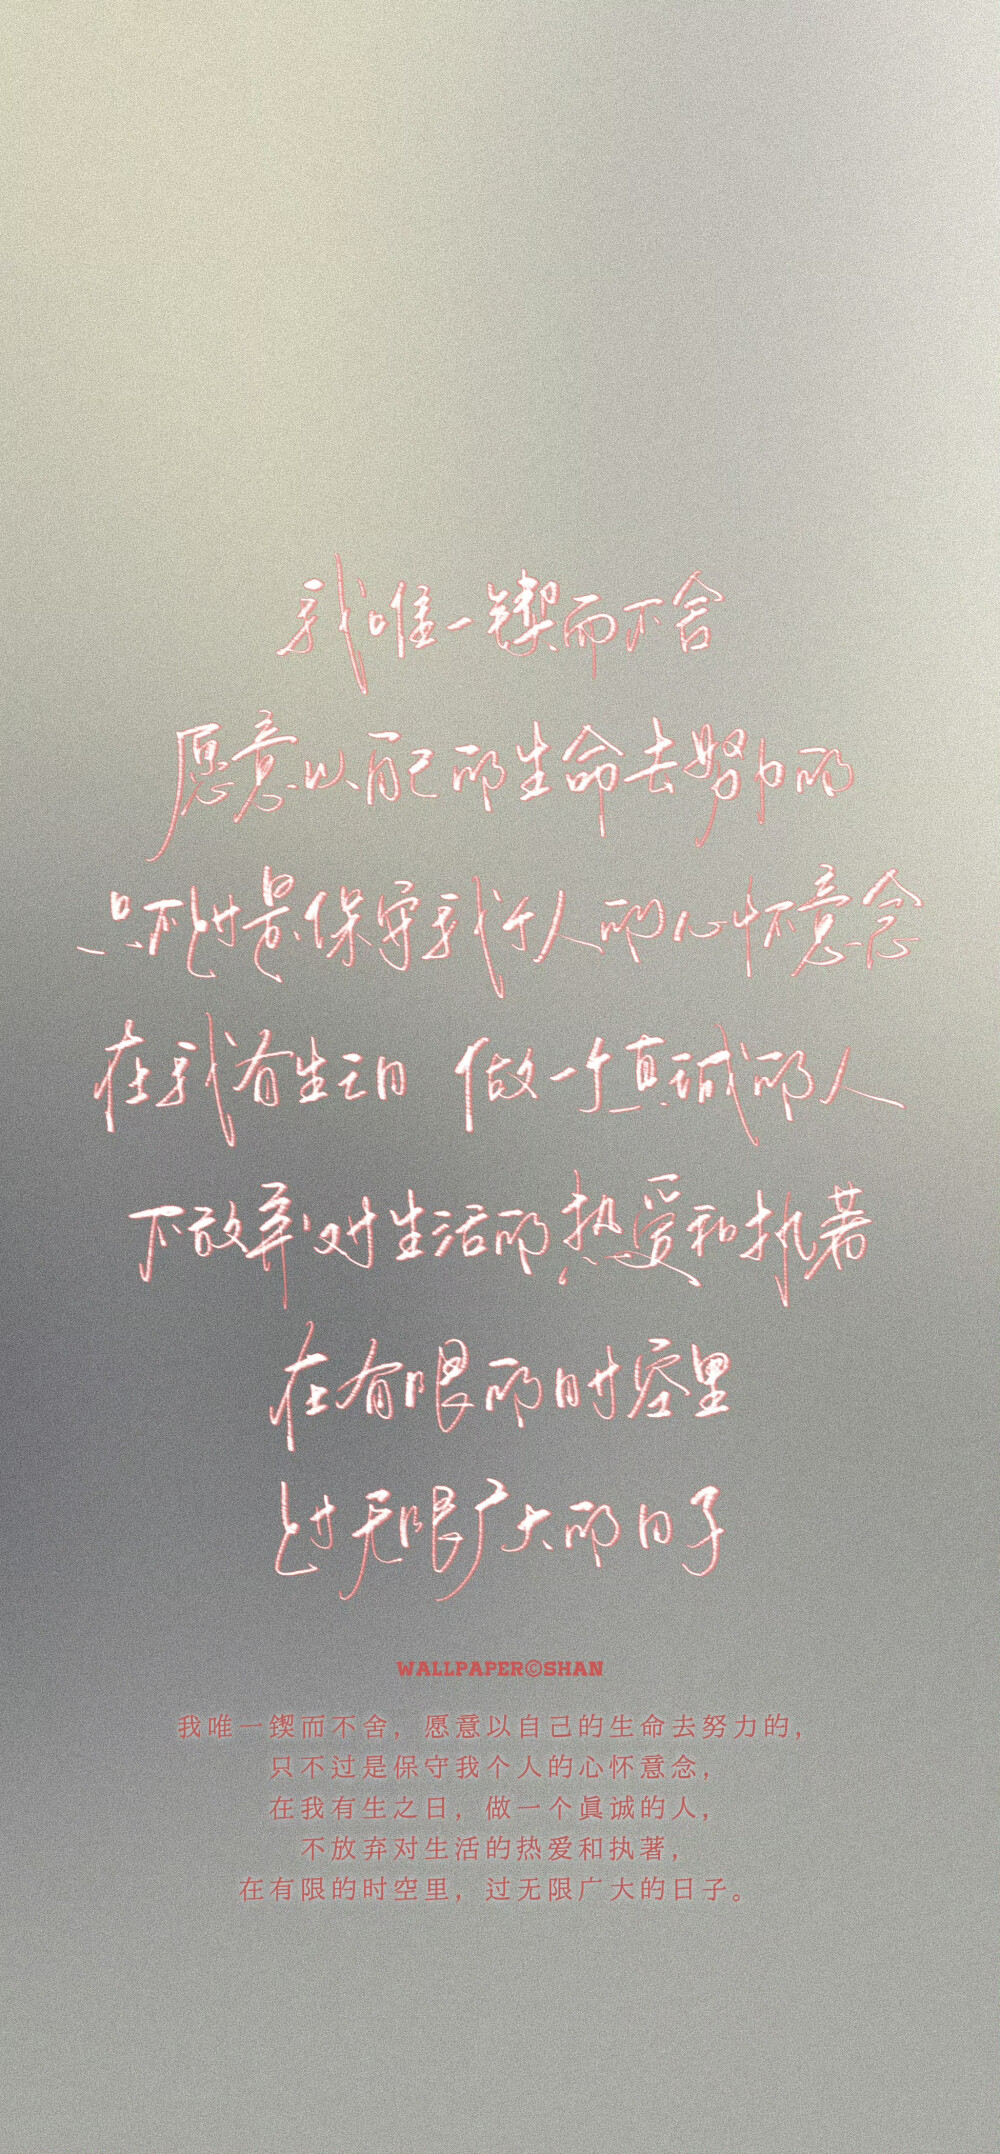 我唯一锲而不舍
愿意以自己的生命去努力的
只不过是保守我个人的心怀意念
在我有生之日 做一个真诚的人
不放弃对生活的热爱和执著
在有限的时空里
过无限广大的日子
WALLPAPER©SHAN
我唯一锲而不舍，愿意以自己的生命去努力的，
只不过是保守我个人的心怀意念，
在我有生之日，做一个真诚的人，
不放弃对生活的热爱和执著，
在有限的时空里，过无限广大的日子。